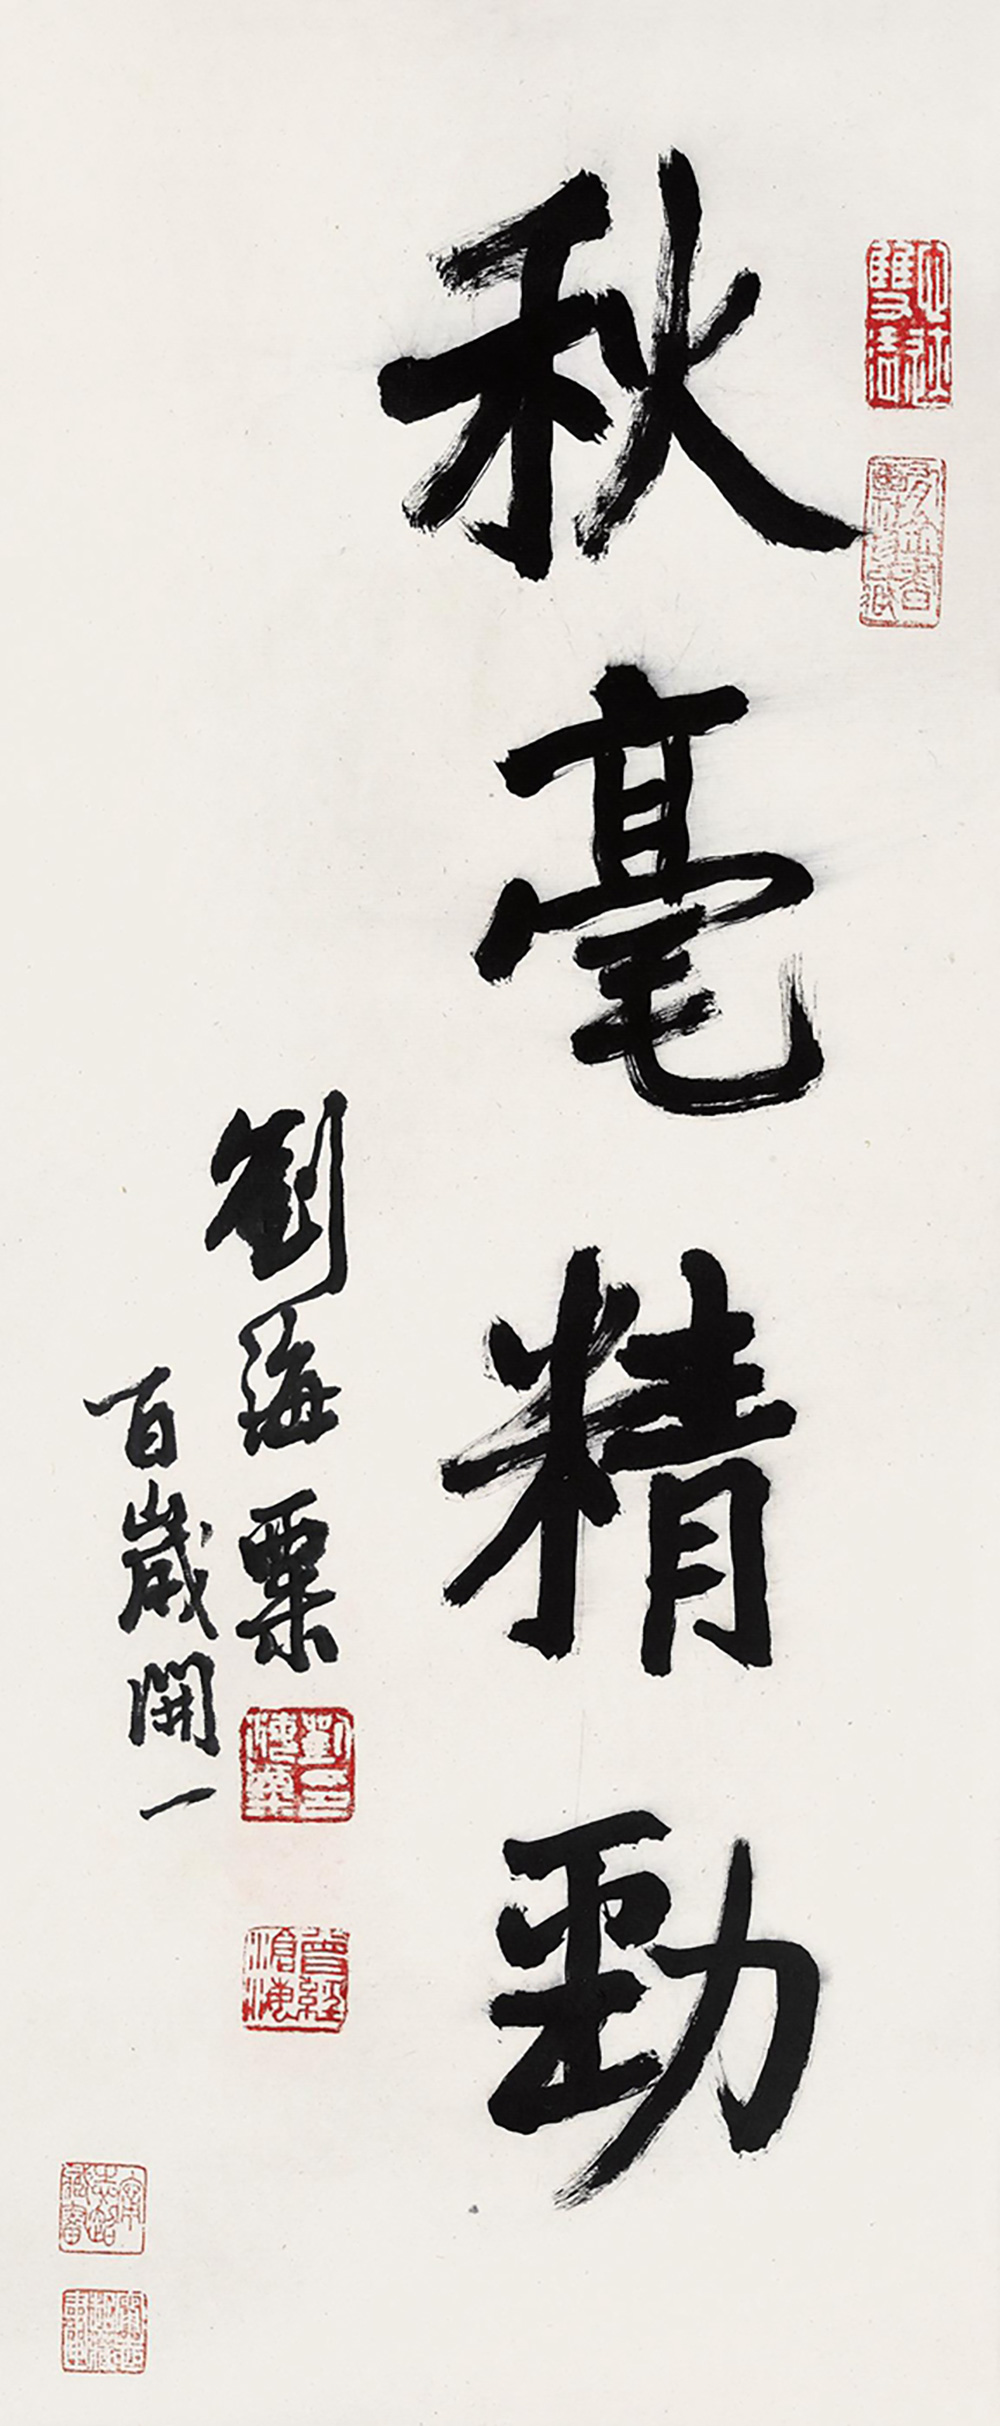 秋毫精勁
劉海粟
百歲開一
劉海粟印
曾經滄海